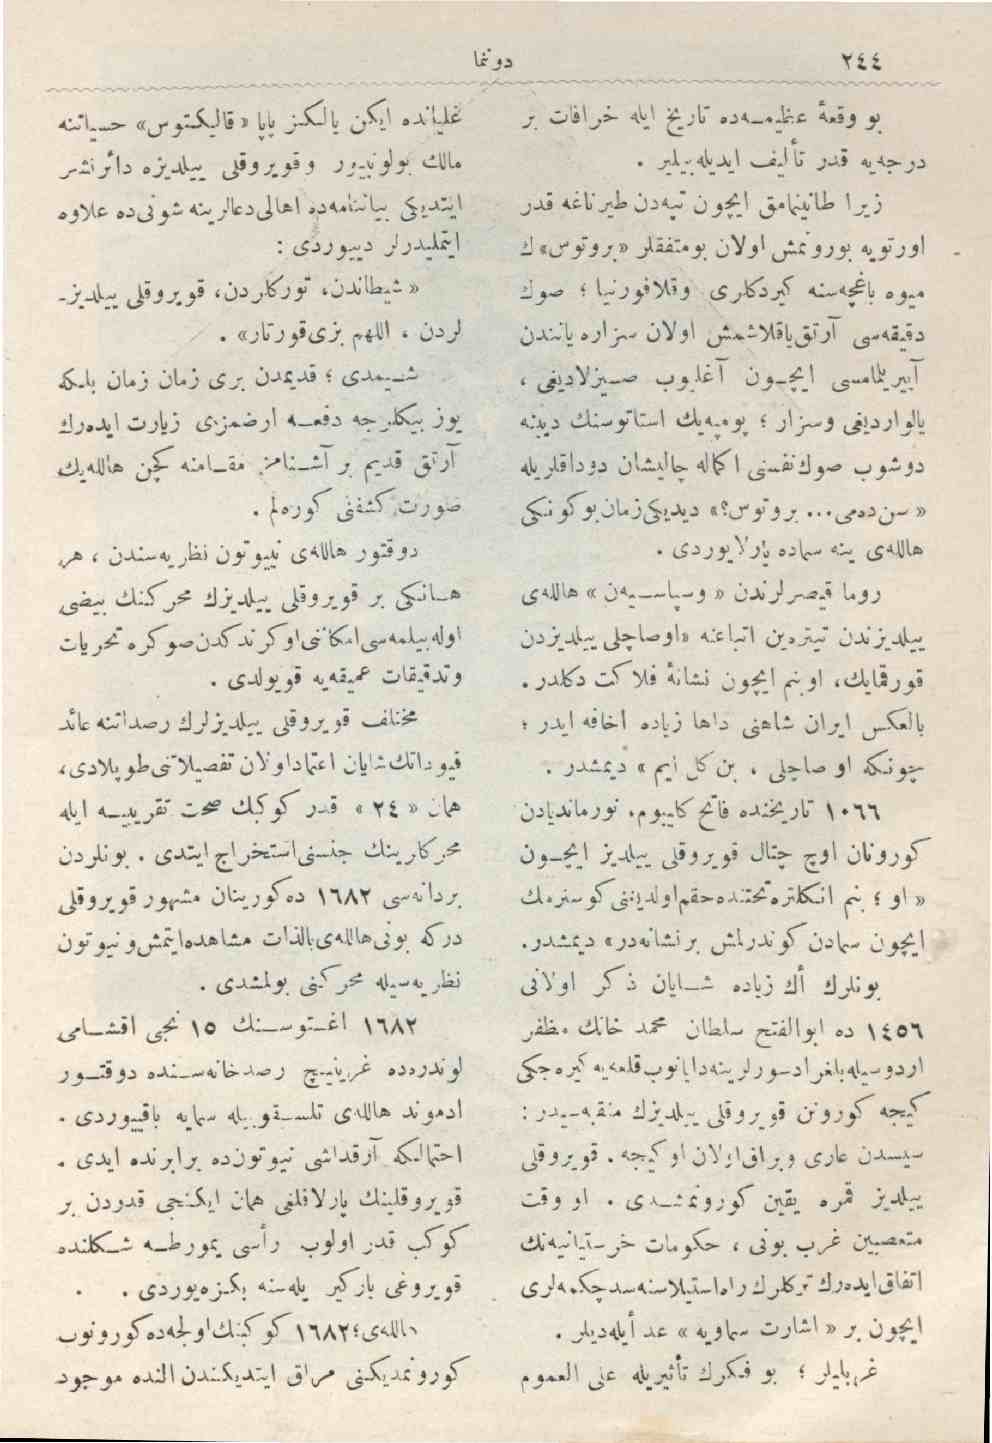 ٢٤٤
دوننما
بو وقعهٔ عظیمه‌ده تاریخ ایله خرافات بر
درجه‌یه قدر تألیف ایدیله‌بیلیر .
زیرا طانینمامق ایچون تپه‌دن طیرناغه قدر
اورتویه بورونمش اولان بومتفقلر «بروتوس»ك
میوه باغچه‌سنه کیردکلری وقلافورنیا ؛ صوك
دقیقه‌سی آرتق یاقلاشمش اولان سزاره یانندن
آییریلمامسی ایچون آغلیوب صیزلادیغی ،
یالواردیغی وسزار ؛ پومپه‌یك استاتوسنك دیبنه
دوشوب صوك نفسنی اکماله چالیشان دوداقلریله
« سن ده‌می... بروتوس؟» دیدیکی زمان بوکونکی
هالله‌ی ینه سماده پارلایوردی .
روما قیصرلرندن « وسپاسیه‌ن » هالله‌ی
ییلدیزندن تیتره‌ین اتباعنه «اوصاچلی ییلدیزدن
قورقمایك، او بنم ایچون نشانهٔ فلاکت دکلدر.
بالعکس ایران شاهنی داها زیاده اخافه ایدر ؛
چونکه او صاچلی ، بن کل ایم » دیمشدر .
١٠٦٦ تاریخنده فاتح کلیوم، نورماندیادن
کورونان اوچ چتال قویروقلی ییلدیز ایچون
« او ؛ بنم انکلتره تختنده حقم اولدیغنی کوسترمك
ایچون سمادن کوندرلمش برنشانه‌در» دیمشدر.
بونلرك أك زیاده شایان ذکر اولانی
١٤٥٦ ده ابوالفتح سلطان محمد خانك مظفر
اردوسیله بلغراد سورلرینه دایانوب قلعه‌یه کیره‌جکی
کیجه کورونن قویروقلی ییلدیزك منقبه‌سیدر :
سیسدن عاری وبراق اولان او کیجه ، قویروقلی
ییلدیز قمره یقین کورونمشدی . او وقت
متعصبین غرب بونی ، حکومات خرستیانیه‌نك
اتفاق ایده‌رك ترکلرك راه استیلاسنه سد چکمه‌لری
ایچون بر « اشارت سماویه » عد ایله‌دیلر .
غربلیلر ؛ بو فکرك تأثیریله علی العموم
غلیانده ایکن یالکز پاپا «قالیکستوس» حسیاتنه
مالك بولونیور وقویروقلی ییلدیزه دائر نشر
ایتدیکی بیاننامه‌ده اهالی دعالرینه شونی ده علاوه
ایتملیدرلر دییوردی :
« شیطاندن، تورکلردن، قویروقلی ییلدیز-
لردن ، اللهم بزی قورتار» .
شیمدی ؛ قدیمدن بری زمان زمان بلکه
یوز بیکلرجه دفعه ارضمزی زیارت ایده‌رك
آرتق قدیم بر آشنامز مقامنه کچن هالله‌یك
صورت کشفنی کوره‌لم .
دوقتور هالله‌ی نیوتون نظریه‌سندن ، هر
هانکی بر قویروقلی ییلدیزك محرکنك بیضی
اوله‌بیلمه‌سی امکاننی اوکرندکدن صوکره تحریات
وتدقیقات عمیقه‌یه قویولدی .
مختلف قویروقلی ییلدیزلرك رصداتنه عائد
قیوداتك شایان اعتماد اولان تفصیلاتنی طوپلادی،
همان « ٢٤ » قدر کوکبك صحت تقریبیه ایله
محرکلرینك جنسنی استخراج ایتدی . بونلردن
بردانه‌سی ١٦٨٢ ده کورینان مشهور قویروقلی
درکه بونی هالله‌ی بالذات مشاهده ایتمش ونیوتون
نظریه‌سیله محرکنی بولمشدی .
١٦٨٢ اغستوسنك ١٥ نجی اقشامی
لوندره‌ده غرینیچ رصدخانه‌سنده دوقتور
ادموند هالله‌ی تلسقوپیله سمایه باقییوردی .
احتمالکه آرقداشی نیوتون ده برابرنده ایدی .
قویروقلینك پارلاقلغی همان ایکنجی قدردن بر
کوکب قدر اولوب رأسی یمورطه شکلنده
قویروغی بارکیر یله‌سنه بکزه‌یوردی .
هالله‌ی؛ ١٦٨٢ کوکبنك اولجه‌ده کورونوب
کورونمدیکنی مراق ایتدیکندن النده موجود